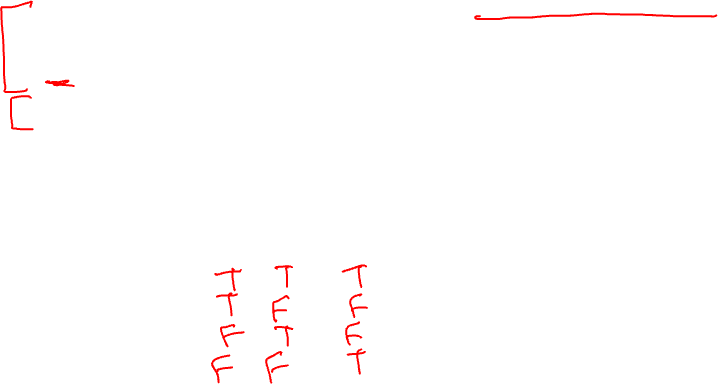 T T T
T F F
F T F
F F T